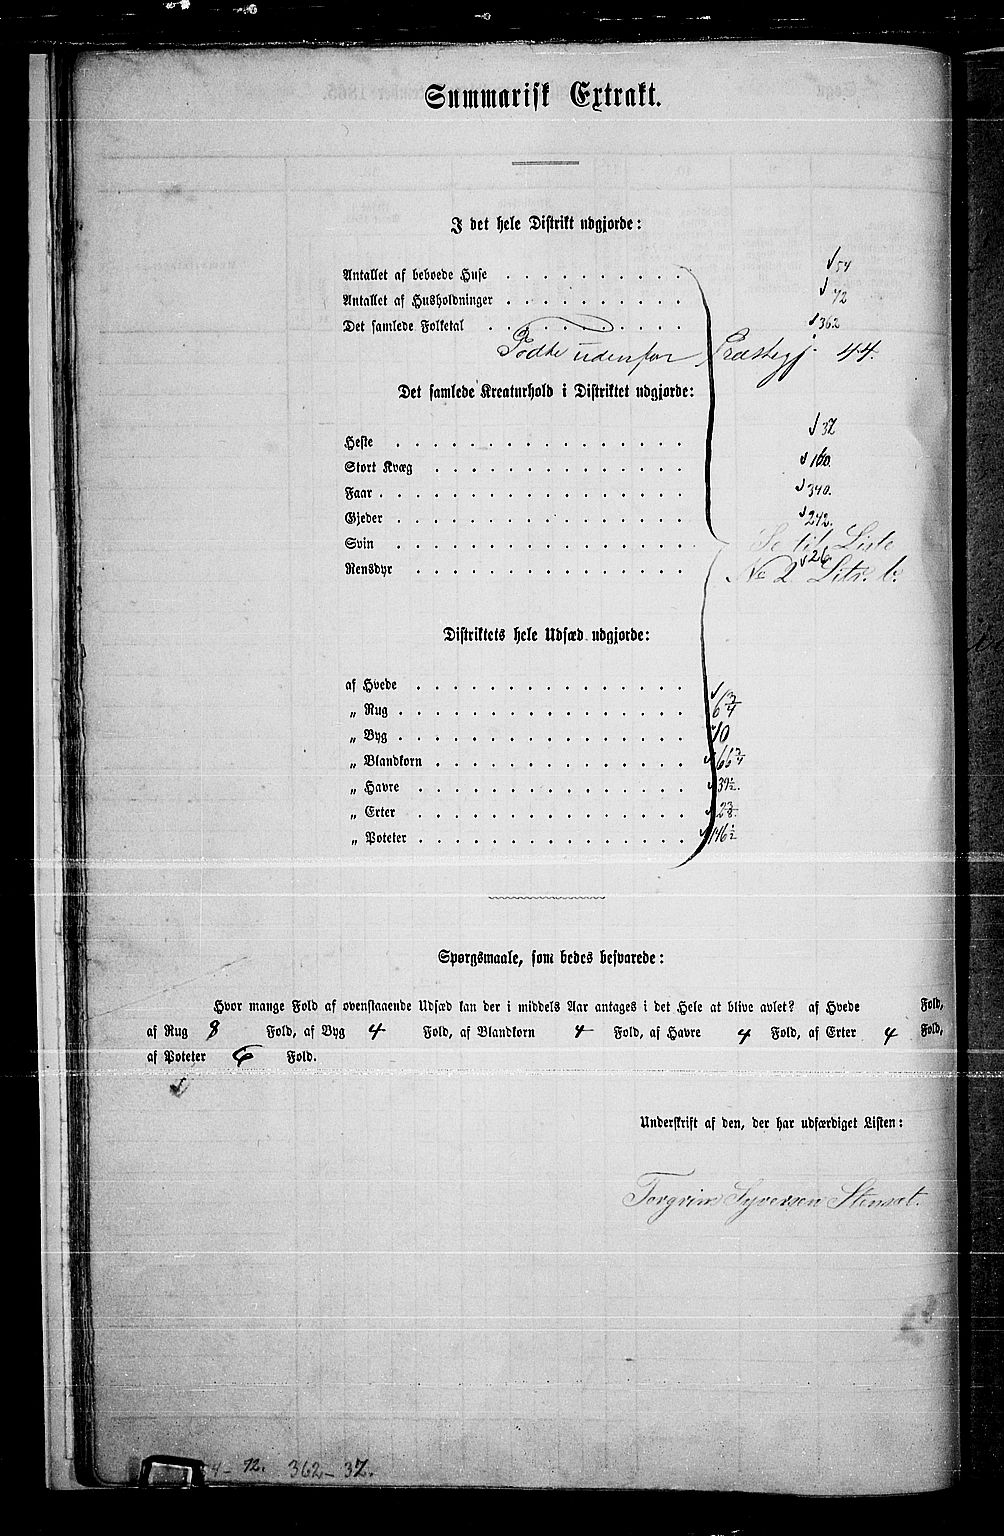 Summarisk Extrakt.
I det hele Distrikt udgjorde:
Antallet af beboede Huse . . . . . . . . . . 54
Antallet af Husholdninger . . . . . . . . . . 72
Det samlede Folketal . . . . . . . . . . 362
Fødte udenfor Præstegj. 44.
Det samlede Kreaturhold i Distriktet udgjorde:
Heste . . . . . . . . . . . . . . . . 37
Stort Kvæg . . . . . . . . . . . . . . 160.
Faar . . . . . . . . . . . . . . . . . 340.
Gjeder . . . . . . . . . . . . . . . . 242.
Svin . . . . . . . . . . . . . . . . Se til Liste
26
Rensdyr . . . . . . . . . . . . . . . No 2 Litr. b.
Distriktets hele Udsæd udgjorde:
af Hvede . . . . . . . . . . . . . . .
„ Rug . . . . . . . . . . . . . . . . 6 3/4
„ Byg . . . . . . . . . . . . . . . . 10
„ Blandkorn . . . . . . . . . . . . . . 66 3/4
„ Havre . . . . . . . . . . . . . . . 39 1/2.
„ Erter . . . . . . . . . . . . . . . 2 3/8.
„ Poteter . . . . . . . . . . . . . . . 146 1/2
Spørgsmaale, som bedes besvarede:
Hvor mange Fold af ovenstaaende Udsæd kan der i middels Aar antages i det Hele at blive avlet? af Hvede Fold,
af Rug 8 Fold, af Byg 4 Fold, af Blandkorn 4 Fold, af Havre 4 Fold, af Erter 4 Fold,
af Poteter 6 Fold.
Underskrift af den, der har udfærdiget Listen:
Torgrim Syversen Stensæt.
4 – 72. 362 – 37.